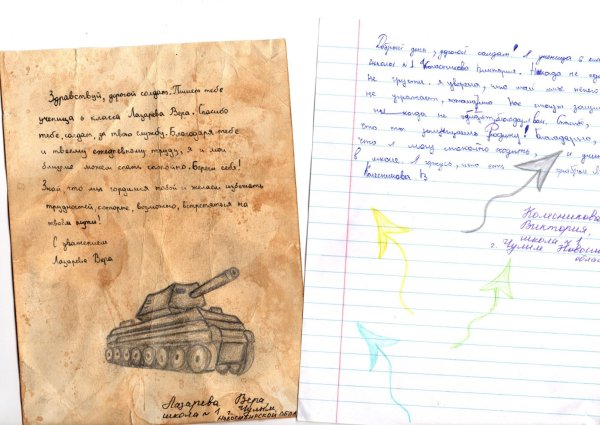 Здравствуй, дорогой солдат. Пишет тебе
ученица 6 класса Лазарева Вера. Спасибо
тебе, солдат, за твою службу. Благодаря тебе
и твоему ежедневному труду, я и мои
близкие можем спать спокойно. Береги себя!
Знай, что мы гордимся тобой и желаем избежать
трудностей, которые, возможно, встретяться на
твоём пути!
С уважением
Лазарева Вера
Лазарева Вера
школа № 1 г. Чулым
Новосибирской обл
Добрый день, дорогой солдат! Я ученица 6
школы № 1 Колесникова Виктория.
не грусти. Я уверена, что нам
не угрожает,
что ты защищаешь Родину! Благодарю,
что я могу спокойно ходить
в школе. Я горжусь, что есть
Колесникова В
Колесникова
Виктория,
школа № 1
г. Чулым Новоси
облас